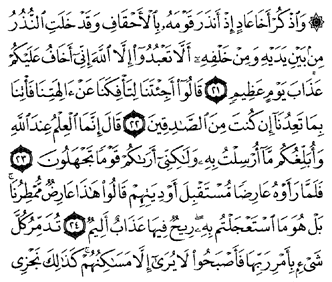 ۞ وَاذْكُرْ أَخَا عَادٍ إِذْ أَنذَرَ قَوْمَهُۥ بِالْأَحْقَافِ وَقَدْ خَلَتِ النُّذُرُ
مِنۢ بَيْنِ يَدَيْهِ وَمِنْ خَلْفِهِۦٓ أَلَّا تَعْبُدُوٓا۟ إِلَّا اللَّهَ إِنِّىٓ أَخَافُ عَلَيْكُمْ
عَذَابَ يَوْمٍ عَظِيمٍ ٢١ قَالُوٓا۟ أَجِئْتَنَا لِتَأْفِكَنَا عَنْ ءَالِهَتِنَا فَأْتِنَا
بِمَا تَعِدُنَآ إِن كُنتَ مِنَ الصَّٰدِقِينَ ٢٢ قَالَ إِنَّمَا الْعِلْمُ عِندَ اللَّهِ
وَأُبَلِّغُكُم مَّآ أُرْسِلْتُ بِهِۦ وَلَٰكِنِّىٓ أَرَىٰكُمْ قَوْمًا تَجْهَلُونَ ٢٣
فَلَمَّا رَأَوْهُ عَارِضًا مُّسْتَقْبِلَ أَوْدِيَتِهِمْ قَالُوا۟ هَٰذَا عَارِضٌ مُّمْطِرُنَا ۚ
بَلْ هُوَ مَا اسْتَعْجَلْتُم بِهِۦ ۖ رِيحٌ فِيهَا عَذَابٌ أَلِيمٌ ٢٤ تُدَمِّرُ كُلَّ
شَىْءٍۭ بِأَمْرِ رَبِّهَا فَأَصْبَحُوا۟ لَا يُرَىٰٓ إِلَّا مَسَٰكِنُهُمْ ۚ كَذَٰلِكَ نَجْزِى